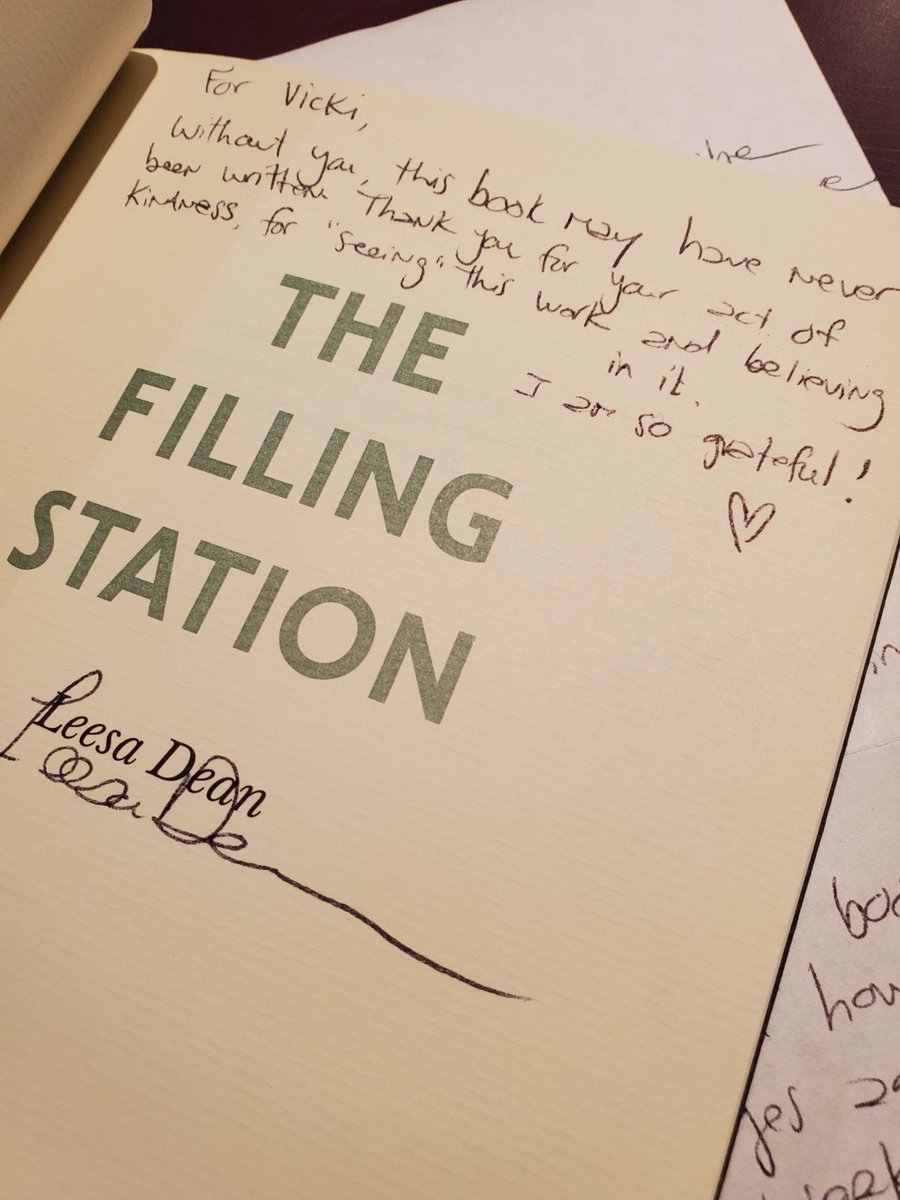 For Vicki,
Without you, this book may have never
been written. Thank you for your act of
kindness, for "seeing" this work and believing
in it.
I am so grateful!
THE
FILLING
STATION
Leesa Dean
Leesa Dean
in
how